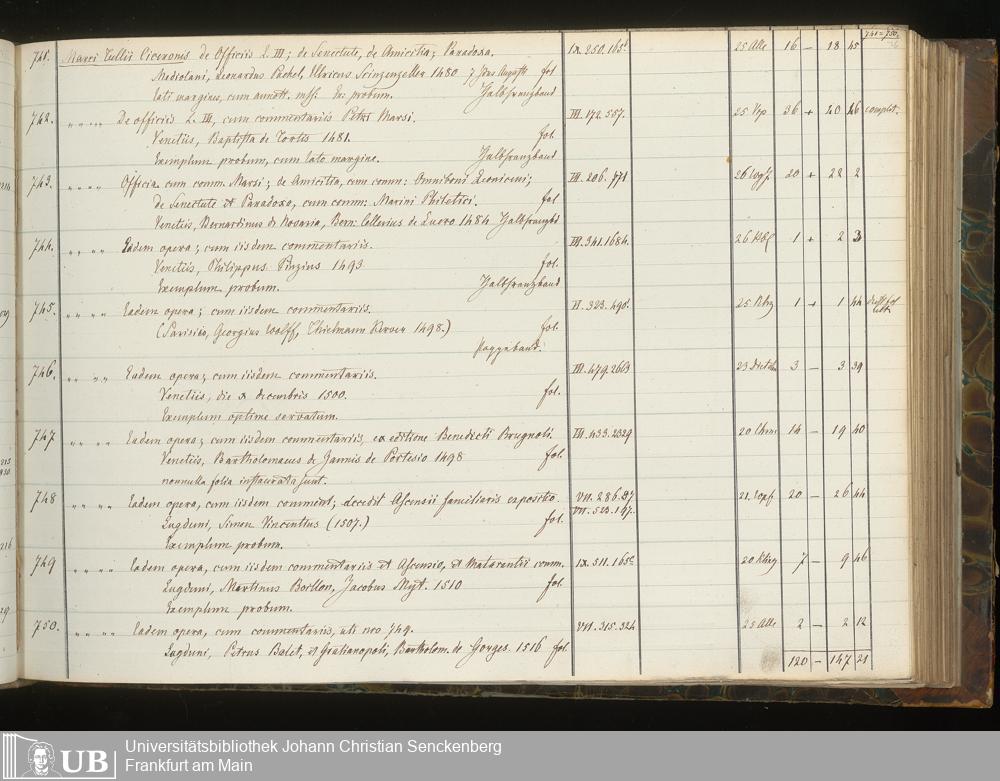 741–750.
741. Marci Tullii Ciceronis de Officiis L. III; de Senectute, de Amicitia; Paradoxa. IX. 250. 25 16 – 18 45
Mediolani, Leonardus Pachel, Ulricus Scinzenzeller 1480 fol
lati margines, cum annott. mss. Ex: probum. Halbfranzband
742. „ „ „ „ De officiis L. III, cum commentariis Petri Marsi. III. 172. 557. 25 36 + 40 46 complet.
Venetiis, Baptista de Tortis 1481. fol.
Exemplum probum, cum lato margine. Halbfranzband
743. „ „ „ „ Officia cum comm. Marsi; de Amicitia, cum comm: Omniboni Leoniceni; III. 206. 771 26 20 + 22 2
de Senectute et Paradoxa, cum comm: Marini Philetici. fol
Venetiis, Bernardinus de Novaria, Bern: Cellerius de Luero 1484 Halbfranzbd
744. „ „ „ „ Eadem opera; cum iisdem commentariis. III. 341. 1684. 26 1 + 2 3
Venetiis, Philippus Pinzius 1493 fol.
Exemplum probum. Halbfranzband
745. „ „ „ „ Eadem opera; cum iisdem commentariis. VI. 323. 490. 25 1 + 1 44
(Parisiis, Georgius Wolff, Thielmann Kerver 1498.) fol.
Pappeband.
746. „ „ „ „ Eadem opera; cum iisdem commentariis. III. 479. 2663 23 3 – 3 39
Venetiis, die x decembris 1500. fol.
Exemplum optime servatum.
747 „ „ „ „ Eadem opera; cum iisdem commentariis, ex editione Benedicti Brugnoli. III. 433. 2329 20 14 – 19 40
Venetiis, Bartholomaeus de Zannis de Portesio 1498 fol.
nonnulla folia instaurata sunt.
748 „ „ „ „ Eadem opera, cum iisdem comment; accedit Ascensii familiaris expositio. VII. 286. 87 21. 20 – 26 44
Lugduni, Simon Vincentius (1507.) fol. VII. 523. 147.
Exemplum probum.
749 „ „ „ „ Eadem opera, cum iisdem commentariis et Ascensio, et Maturantii comm. IX. 511. 165 20 7 – 9 46
Lugduni, Martinus Boillon, Jacobus Myt. 1510 fol.
Exemplum probum.
750. „ „ „ „ Eadem opera, cum commentariis, uti nro 749. VII. 315. 324 25 2 – 2 12
Lugduni, Petrus Balet, et Gratianopoli, Bartholom. de Gorges. 1516 fol.
120 – 147 21
UB Universitätsbibliothek Johann Christian Senckenberg
Frankfurt am Main